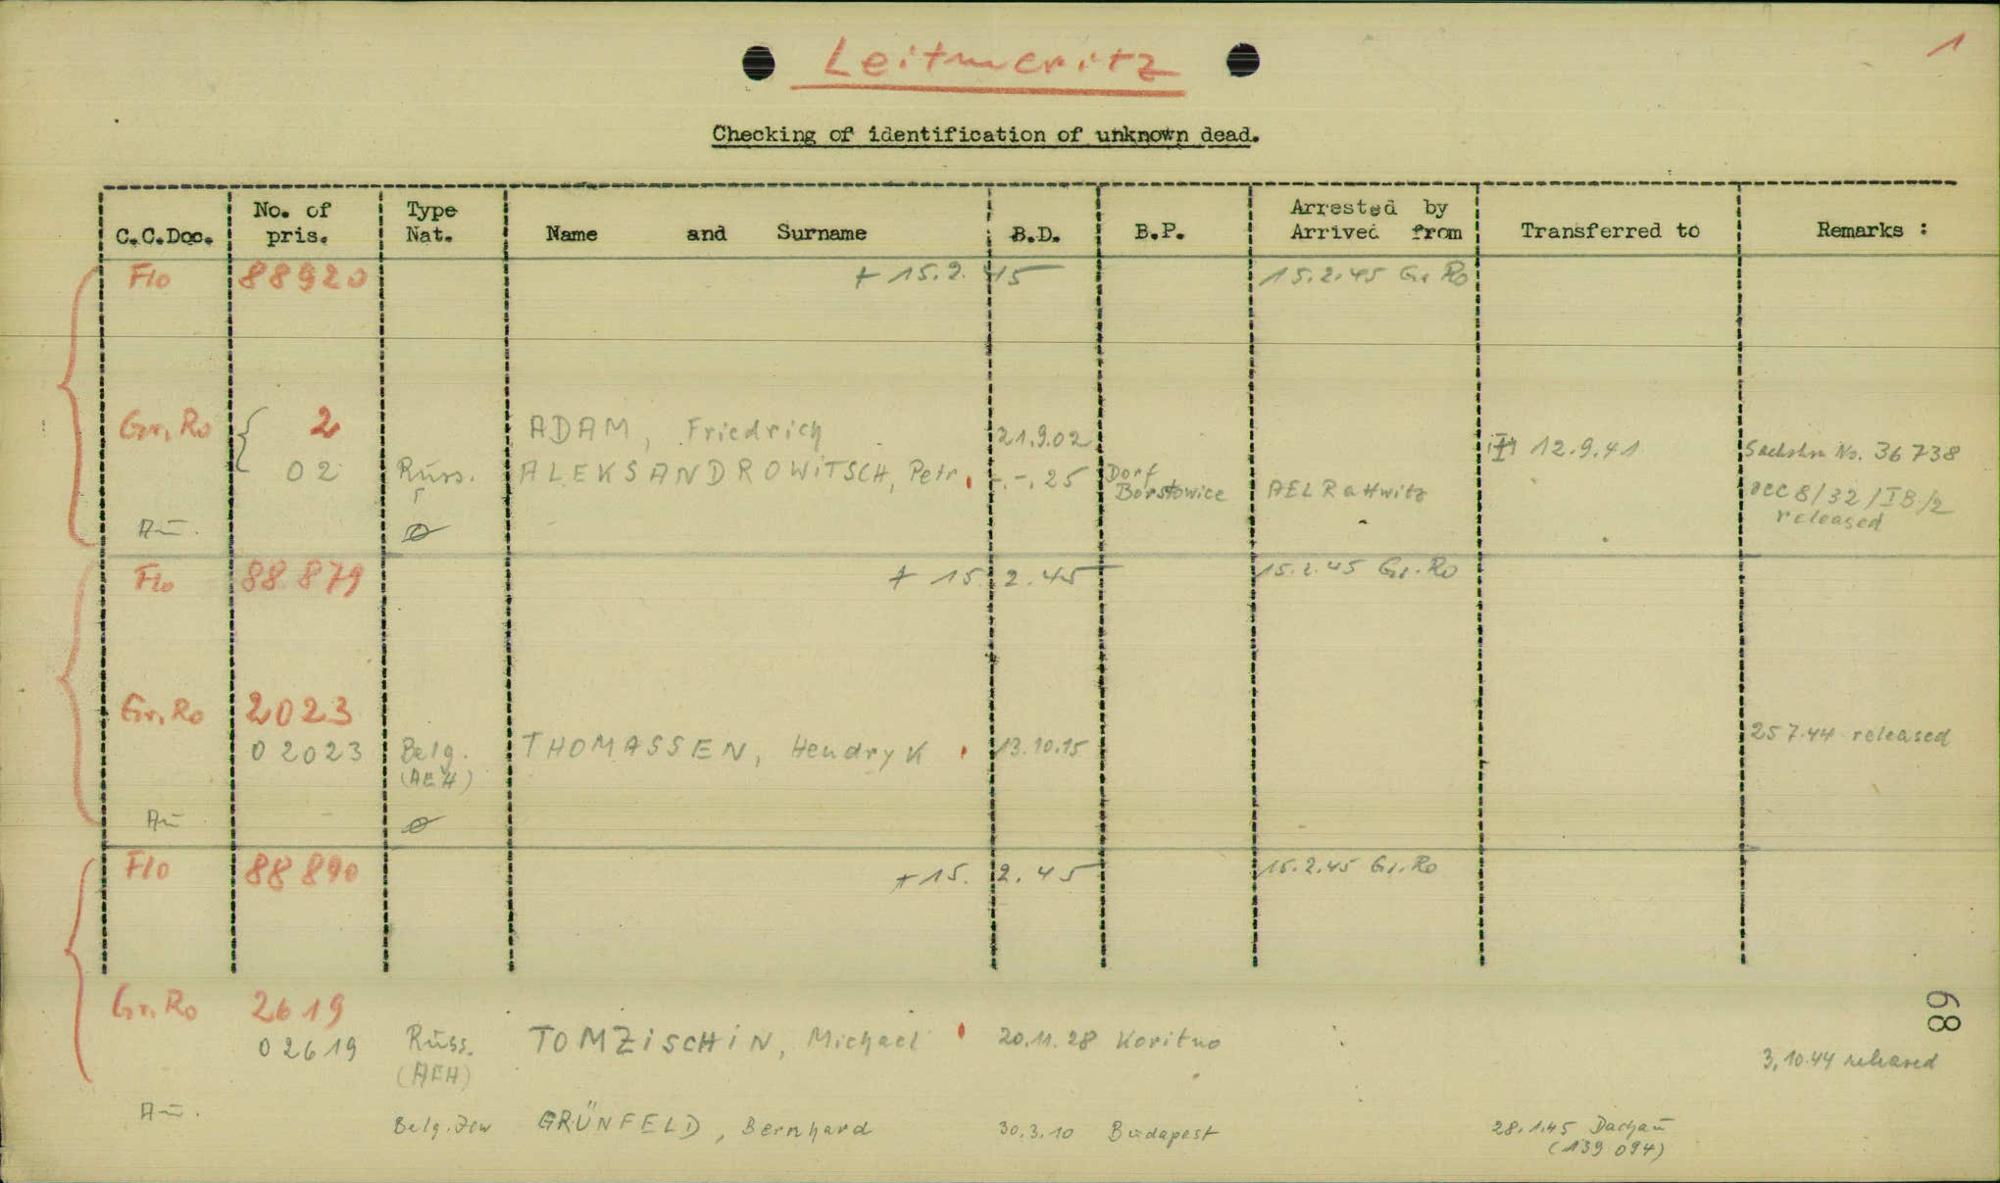 Leitmeritz
1
Checking of identification of unknown dead.
C.C.Doc. No. of pris. Type Nat. Name and Surname B.D. B.P. Arrested by Arrived from Transferred to Remarks :
Flo 88920 + 15.2.45 15.2.45 Gr. Ro
Gr. Ro 2 ADAM, Friedrich 21.9.02 12.9.41 No. 36738
02 Russ. ALEKSANDROWITSCH, Petr. -.-.25 Dorf Borstowice AEL Rattwitz 8/32/IB/2
released
Au. ø
Flo 88879 + 15.2.45 15.2.45 Gr. Ro
Gr. Ro 2023
02023 Belg. THOMASSEN, Hendryk 13.10.15 25.7.44 released
(AEH)
Au ø
Flo 88890 + 15.2.45 15.2.45 Gr. Ro
Gr. Ro 2619
02619 Russ. TOMZISCHIN, Michael 20.11.28 Koritno 3.10.44 released
(AEH)
Au. Belg. Jew GRÜNFELD, Bernhard 30.3.10 Budapest 28.1.45 Dachau
(139 094)
68